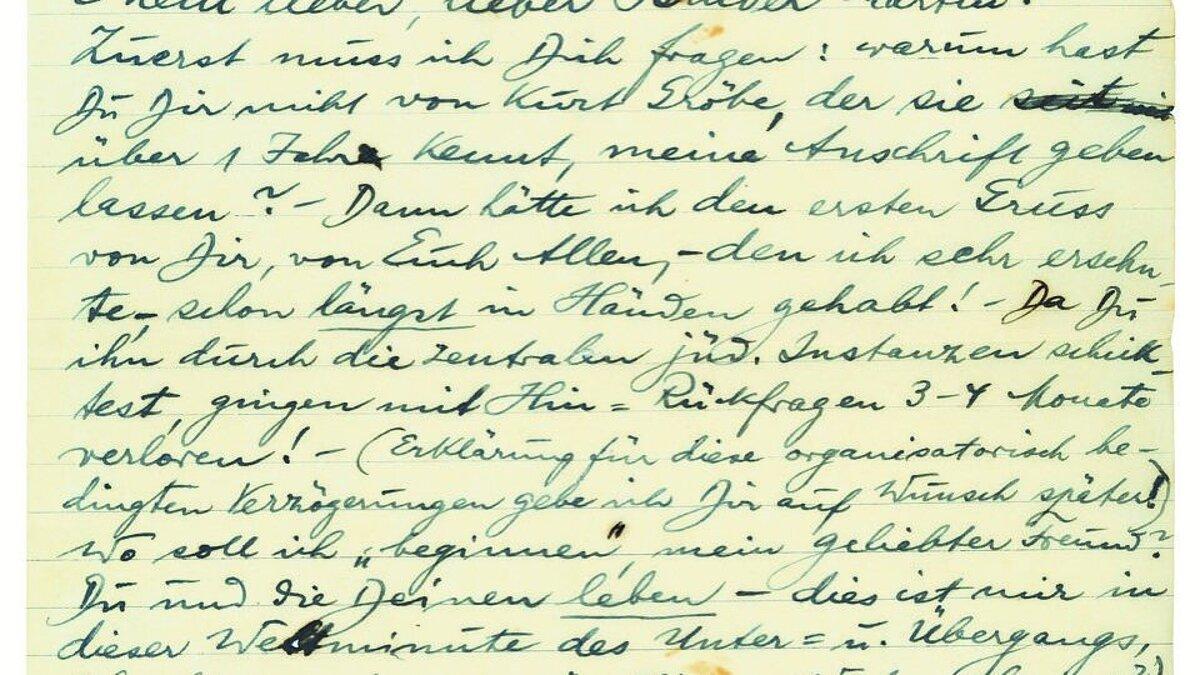 Mein lieber, lieber Bruder Martin!
Zuerst muss ich Dich fragen: warum hast
Du Dir nicht von Kurt Gröbe, der sie seit mir
über 1 Jahre kennt, meine Anschrift geben
lassen? – Dann hätte ich den ersten Gruss
von Dir, von Euch Allen, – den ich sehr ersehn-
te, – schon längst in Händen gehabt! – Da Du
ihn durch die zentralen jüd. Instanzen schick-
test, gingen mit Hin = Rückfragen 3–4 Monate
verloren! – (Erklärung für diese organisatorisch be-
dingten Verzögerungen gebe ich Dir auf Wunsch später!)
Wo soll ich „beginnen“, mein geliebter Freund?
Du und die Deinen leben – dies ist mir in
dieser Weltminute des Unter = u. Übergangs,